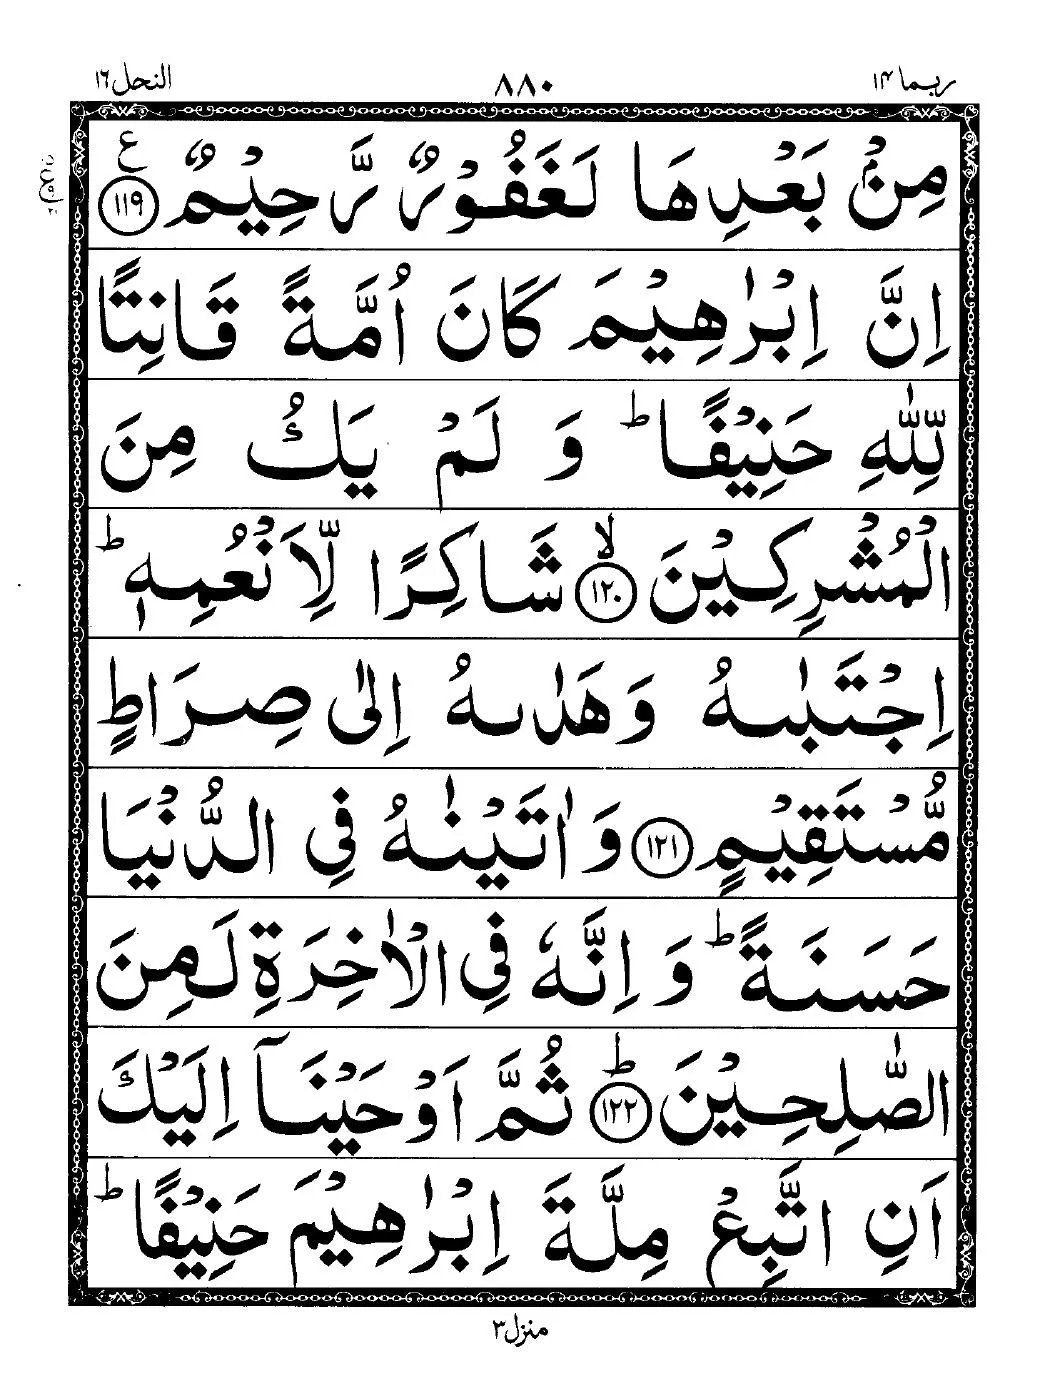 ربما ١٤
٨٨٠
النحل ١٦
مِنْۢ بَعْدِهَا لَغَفُوْرٌ رَّحِيْمٌ ١١٩ ع
اِنَّ اِبْرٰهِيْمَ كَانَ اُمَّةً قَانِتًا
لِّلّٰهِ حَنِيْفًا ؕ وَ لَمْ يَكُ مِنَ
الْمُشْرِكِيْنَ ۙ ١٢٠ شَاكِرًا لِّاَنْعُمِهٖ ؕ
اِجْتَبٰىهُ وَهَدٰىهُ اِلٰى صِرَاطٍ
مُّسْتَقِيْمٍ ١٢١ وَاٰتَيْنٰهُ فِى الدُّنْيَا
حَسَنَةً ؕ وَ اِنَّهٗ فِى الْاٰخِرَةِ لَمِنَ
الصّٰلِحِيْنَ ؕ ١٢٢ ثُمَّ اَوْحَيْنَاۤ اِلَيْكَ
اَنِ اتَّبِعْ مِلَّةَ اِبْرٰهِيْمَ حَنِيْفًا ؕ
منزل ٣